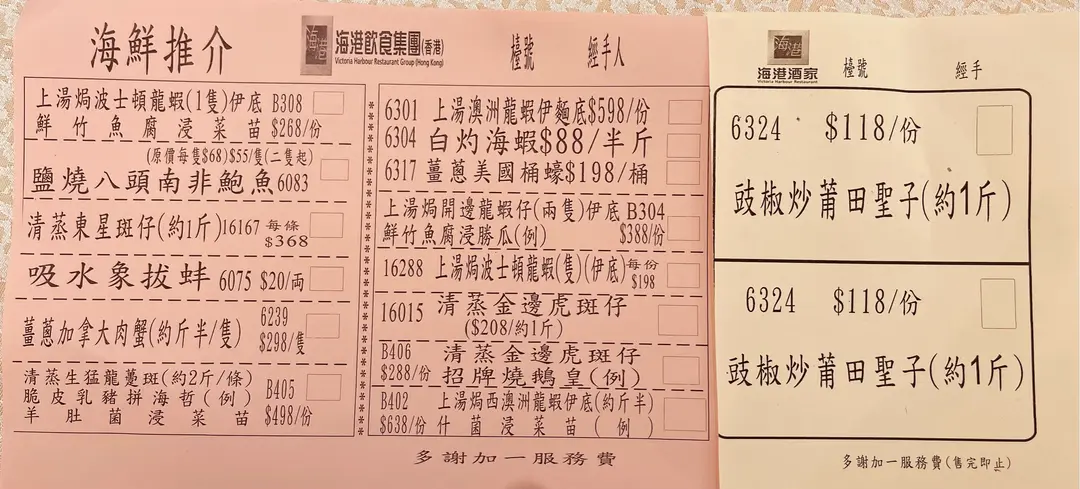 海鮮推介
海港
海港飲食集團(香港)
Victoria Harbour Restaurant Group (Hong Kong)
檯號
經手人
上湯焗波士頓龍蝦(1隻)伊底 B308
鮮竹魚腐浸菜苗 $268/份
(原價每隻$68)$55/隻(二隻起)
鹽燒八頭南非鮑魚6083
清蒸東星斑仔(約1斤)16167 每條
$368
吸水象拔蚌 6075 $20/両
薑蔥加拿大肉蟹(約斤半/隻) 6239
$298/隻
清蒸生猛龍躉斑(約2斤/條)
脆皮乳豬拼海哲(例) B405
羊肚菌浸菜苗 $498/份
6301 上湯澳洲龍蝦伊麵底$598/份
6304 白灼海蝦$88/半斤
6317 薑蔥美國桶蠔$198/桶
上湯焗開邊龍蝦仔(兩隻)伊底 B304
鮮竹魚腐浸勝瓜(例) $388/份
16288 上湯焗波士頓龍蝦(隻)(伊底)每份
$198
16015 清蒸金邊虎斑仔
($208/約1斤)
B406 清蒸金邊虎斑仔
$288/份 招牌燒鵝皇(例)
B402 上湯焗西澳洲龍蝦伊底(約斤半)
$638/份 什菌浸菜苗(例)
多謝加一服務費
海港
海港酒家
Victoria Harbour Restaurant
檯號
經手
6324 $118/份
豉椒炒莆田聖子(約1斤)
6324 $118/份
豉椒炒莆田聖子(約1斤)
多謝加一服務費(售完即止)